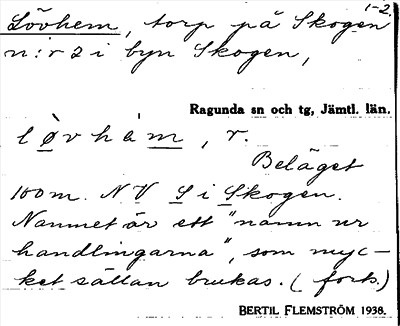 1-2.
Lövhem, torp på Skogen
n:r 2 i byn Skogen,
Ragunda sn och tg, Jämtl. län.
lø̀vhàm, r.
Beläget
100 m. NV S i Skogen.
Namnet är ett "namn ur
handlingarna", som myc-
ket sällan brukas. (forts.)
BERTIL FLEMSTRÖM 1938.